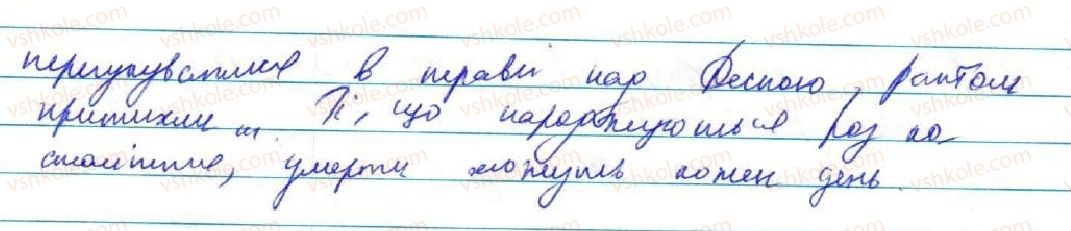 перегукувалися в траві над Десною, раптом
притихли... Ті, що народжуються раз на
століття, умерти можуть кожен день.